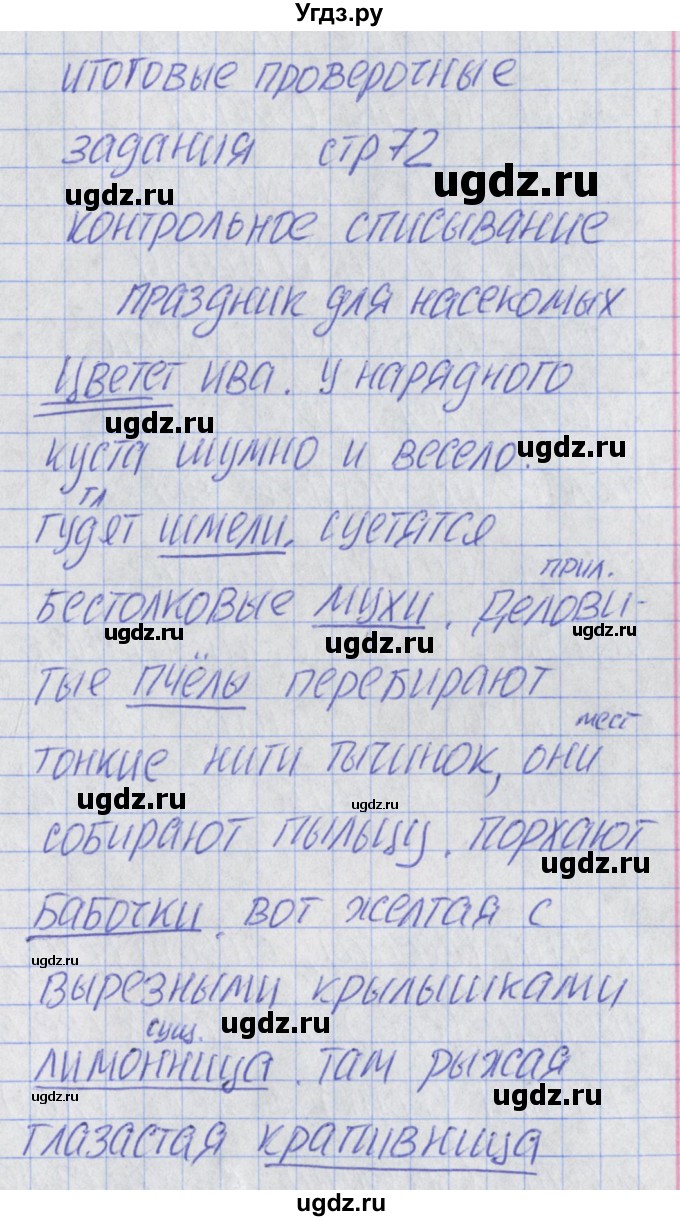 Угдз.ру
итоговые проверочные
задания стр 72
ugdz.ru ugdz.ru
контрольное списывание
праздник для насекомых
Цветет ива. у нарядного
ugdz.ru ugdz.ru
куста шумно и весело.
гл
гудят шмели. суетятся
прил.
бестолковые мухи. Делови-
ugdz.ru ugdz.ru ugdz.ru
тые пчёлы перебирают
мест
тонкие нити тычинок, они
ugdz.ru ugdz.ru
собирают пыльцу. порхают
ugdz.ru
бабочки. вот желтая с
ugdz.ru
вырезными крылышками
сущ. ugdz.ru
лимонница. там рыжая
ugdz.ru ugdz.ru
глазастая крапивница
ugdz.ru